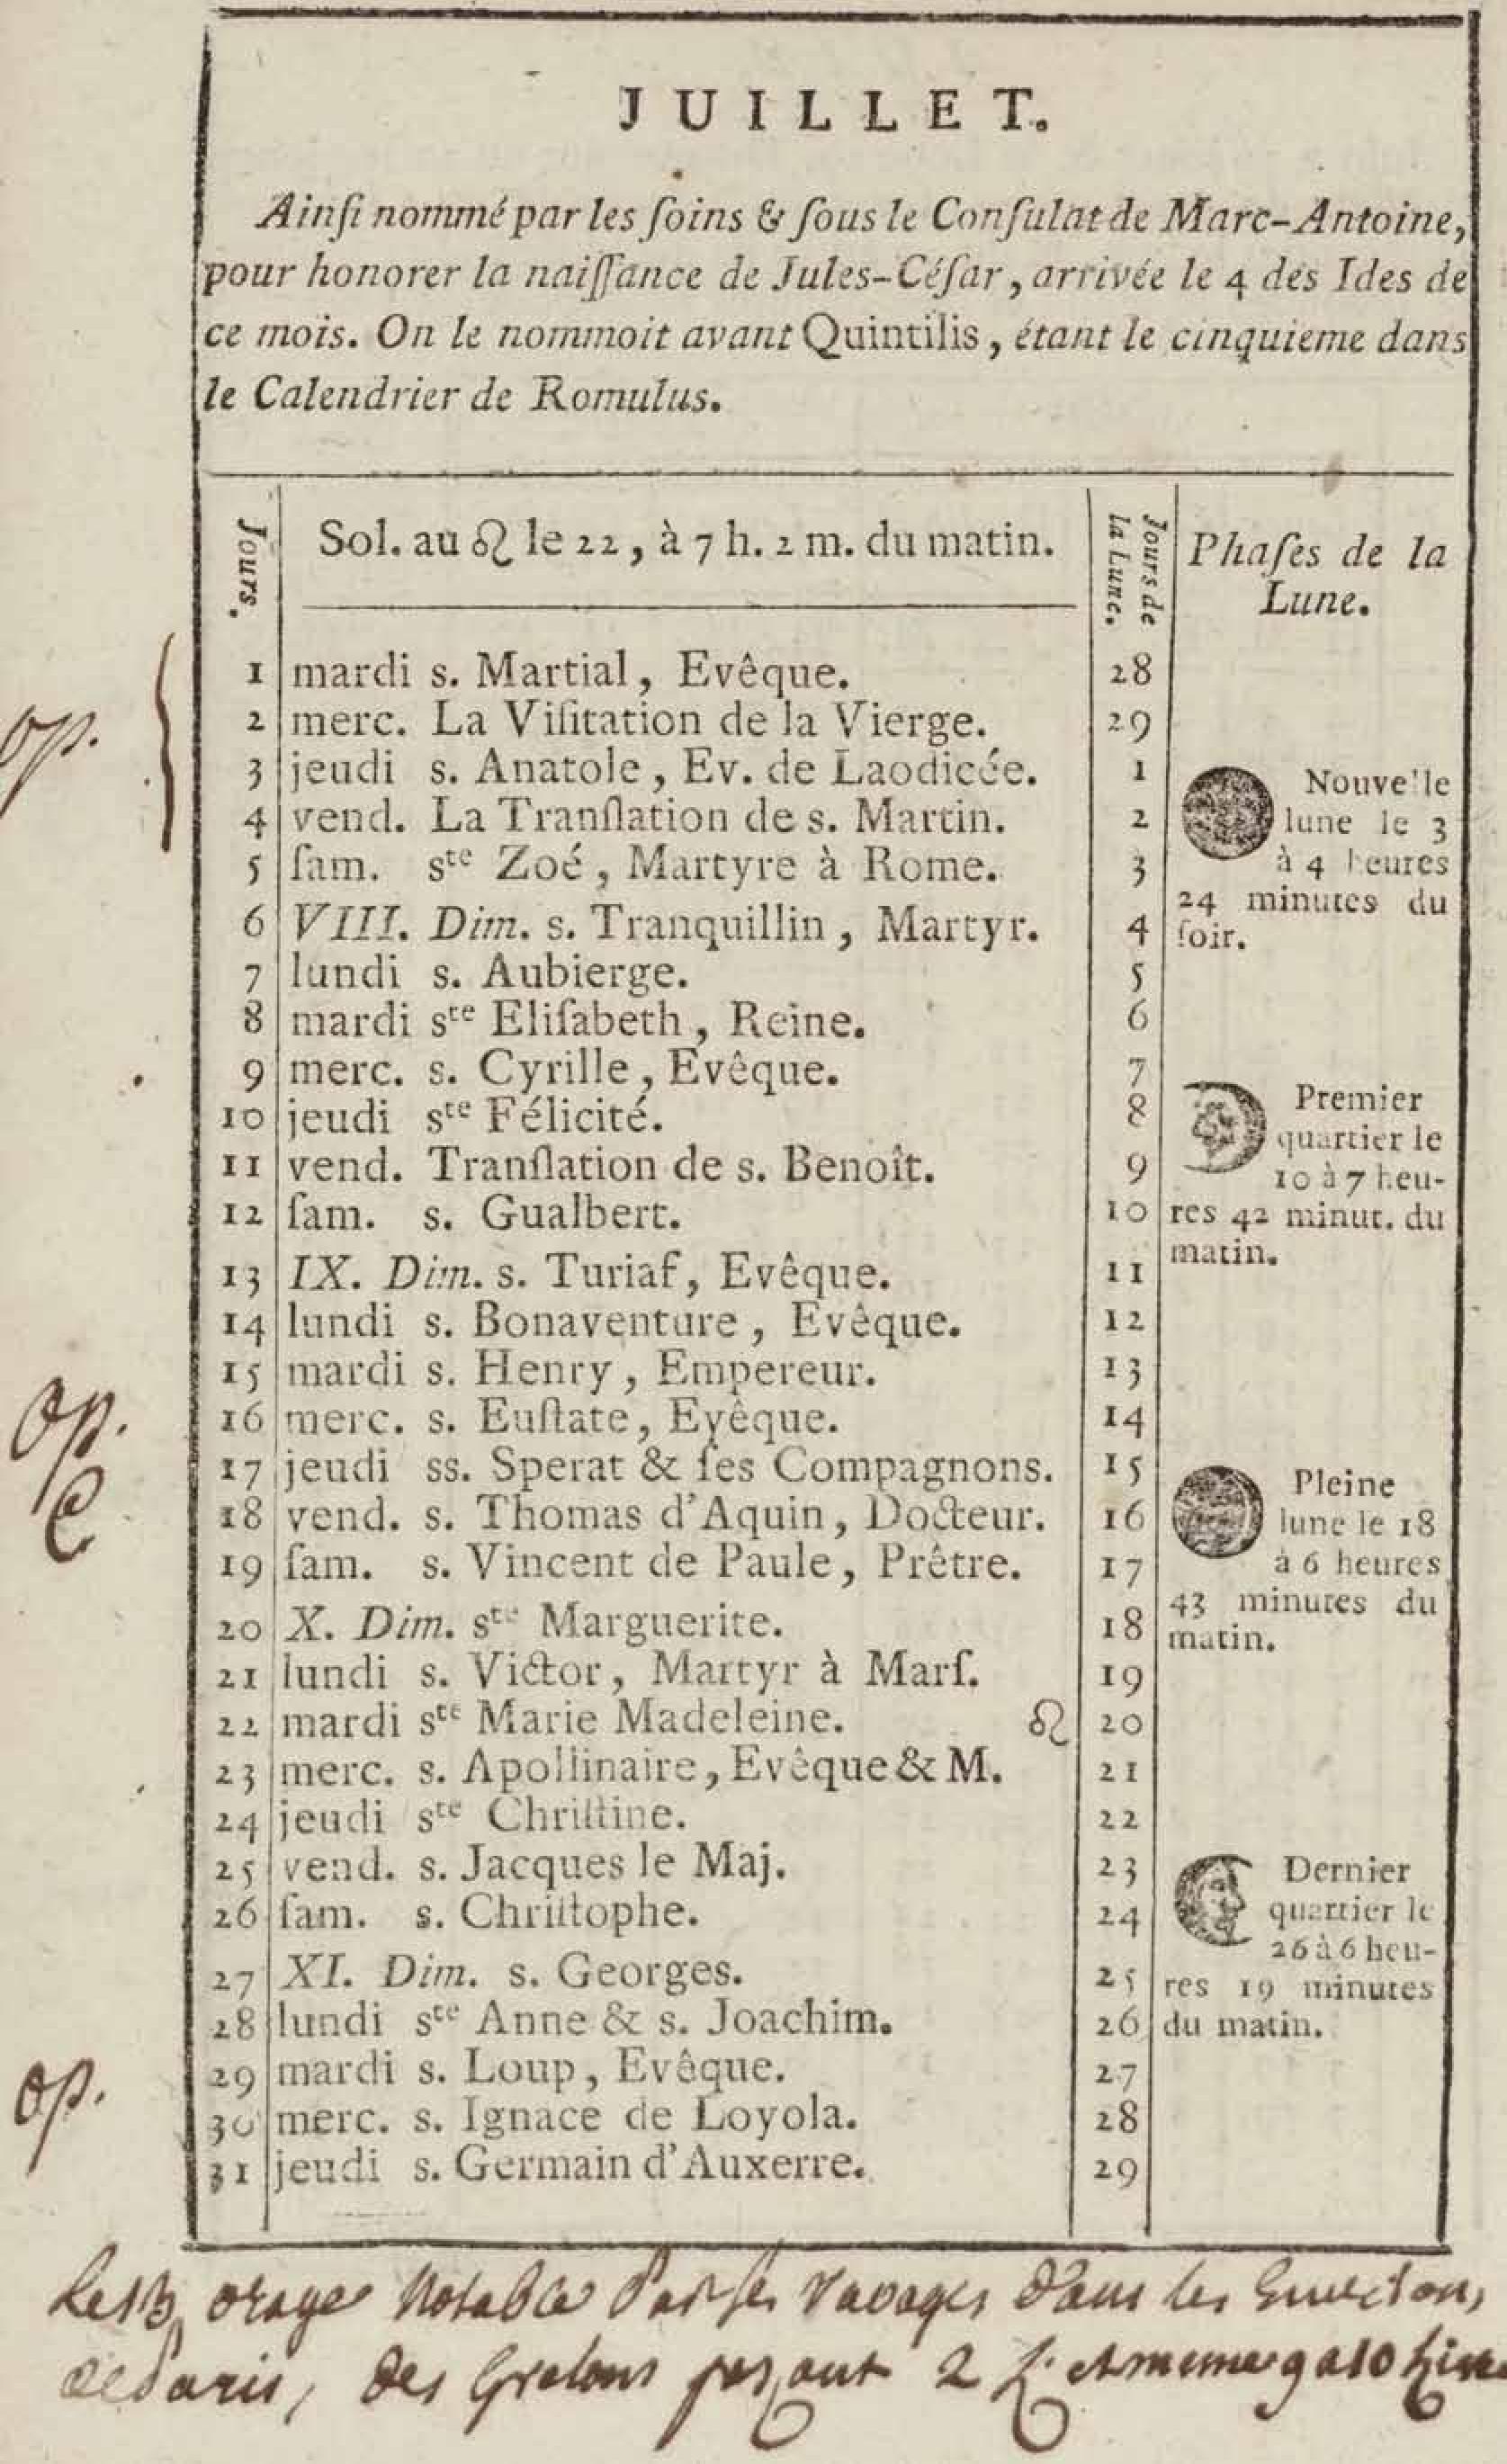 JUILLET.
Ainſi nommé par les ſoins & ſous le Conſulat de Marc-Antoine,
pour honorer la naiſſance de Jules-Céſar, arrivée le 4 des Ides de
ce mois. On le nommoit avant Quintilis, étant le cinquieme dans
le Calendrier de Romulus.
Jours.
Sol. au ♌ le 22, à 7 h. 2 m. du matin.
Jours de
la Lune.
Phaſes de la
Lune.
1 mardi s. Martial, Evêque. 28
2 merc. La Viſitation de la Vierge. 29
3 jeudi s. Anatole, Ev. de Laodicée. 1
4 vend. La Tranſlation de s. Martin. 2
5 ſam. ste Zoé, Martyre à Rome. 3
6 VIII. Dim. s. Tranquillin, Martyr. 4
7 lundi s. Aubierge. 5
8 mardi ste Eliſabeth, Reine. 6
9 merc. s. Cyrille, Evêque. 7
10 jeudi ste Félicité. 8
11 vend. Tranſlation de s. Benoît. 9
12 ſam. s. Gualbert. 10
13 IX. Dim. s. Turiaf, Evêque. 11
14 lundi s. Bonaventure, Evêque. 12
15 mardi s. Henry, Empereur. 13
16 merc. s. Euſtate, Evêque. 14
17 jeudi ss. Sperat & ſes Compagnons. 15
18 vend. s. Thomas d'Aquin, Docteur. 16
19 ſam. s. Vincent de Paule, Prêtre. 17
20 X. Dim. ste Marguerite. 18
21 lundi s. Victor, Martyr à Marſ. 19
22 mardi ste Marie Madeleine. ♌ 20
23 merc. s. Apollinaire, Evêque & M. 21
24 jeudi ste Chriſtine. 22
25 vend. s. Jacques le Maj. 23
26 ſam. s. Chriſtophe. 24
27 XI. Dim. s. Georges. 25
28 lundi ste Anne & s. Joachim. 26
29 mardi s. Loup, Evêque. 27
30 merc. s. Ignace de Loyola. 28
31 jeudi s. Germain d'Auxerre. 29
Nouvelle
lune le 3
à 4 heures
24 minutes du
ſoir.
Premier
quartier le
10 à 7 heu-
res 42 minut. du
matin.
Pleine
lune le 18
à 6 heures
43 minutes du
matin.
Dernier
quartier le
26 à 6 heu-
res 19 minutes
du matin.
op.
op.
C
op.
orage Notable Par ses ravages Dans les
de Paris, des Grelons pesant 2 L. et meme 9 a 10